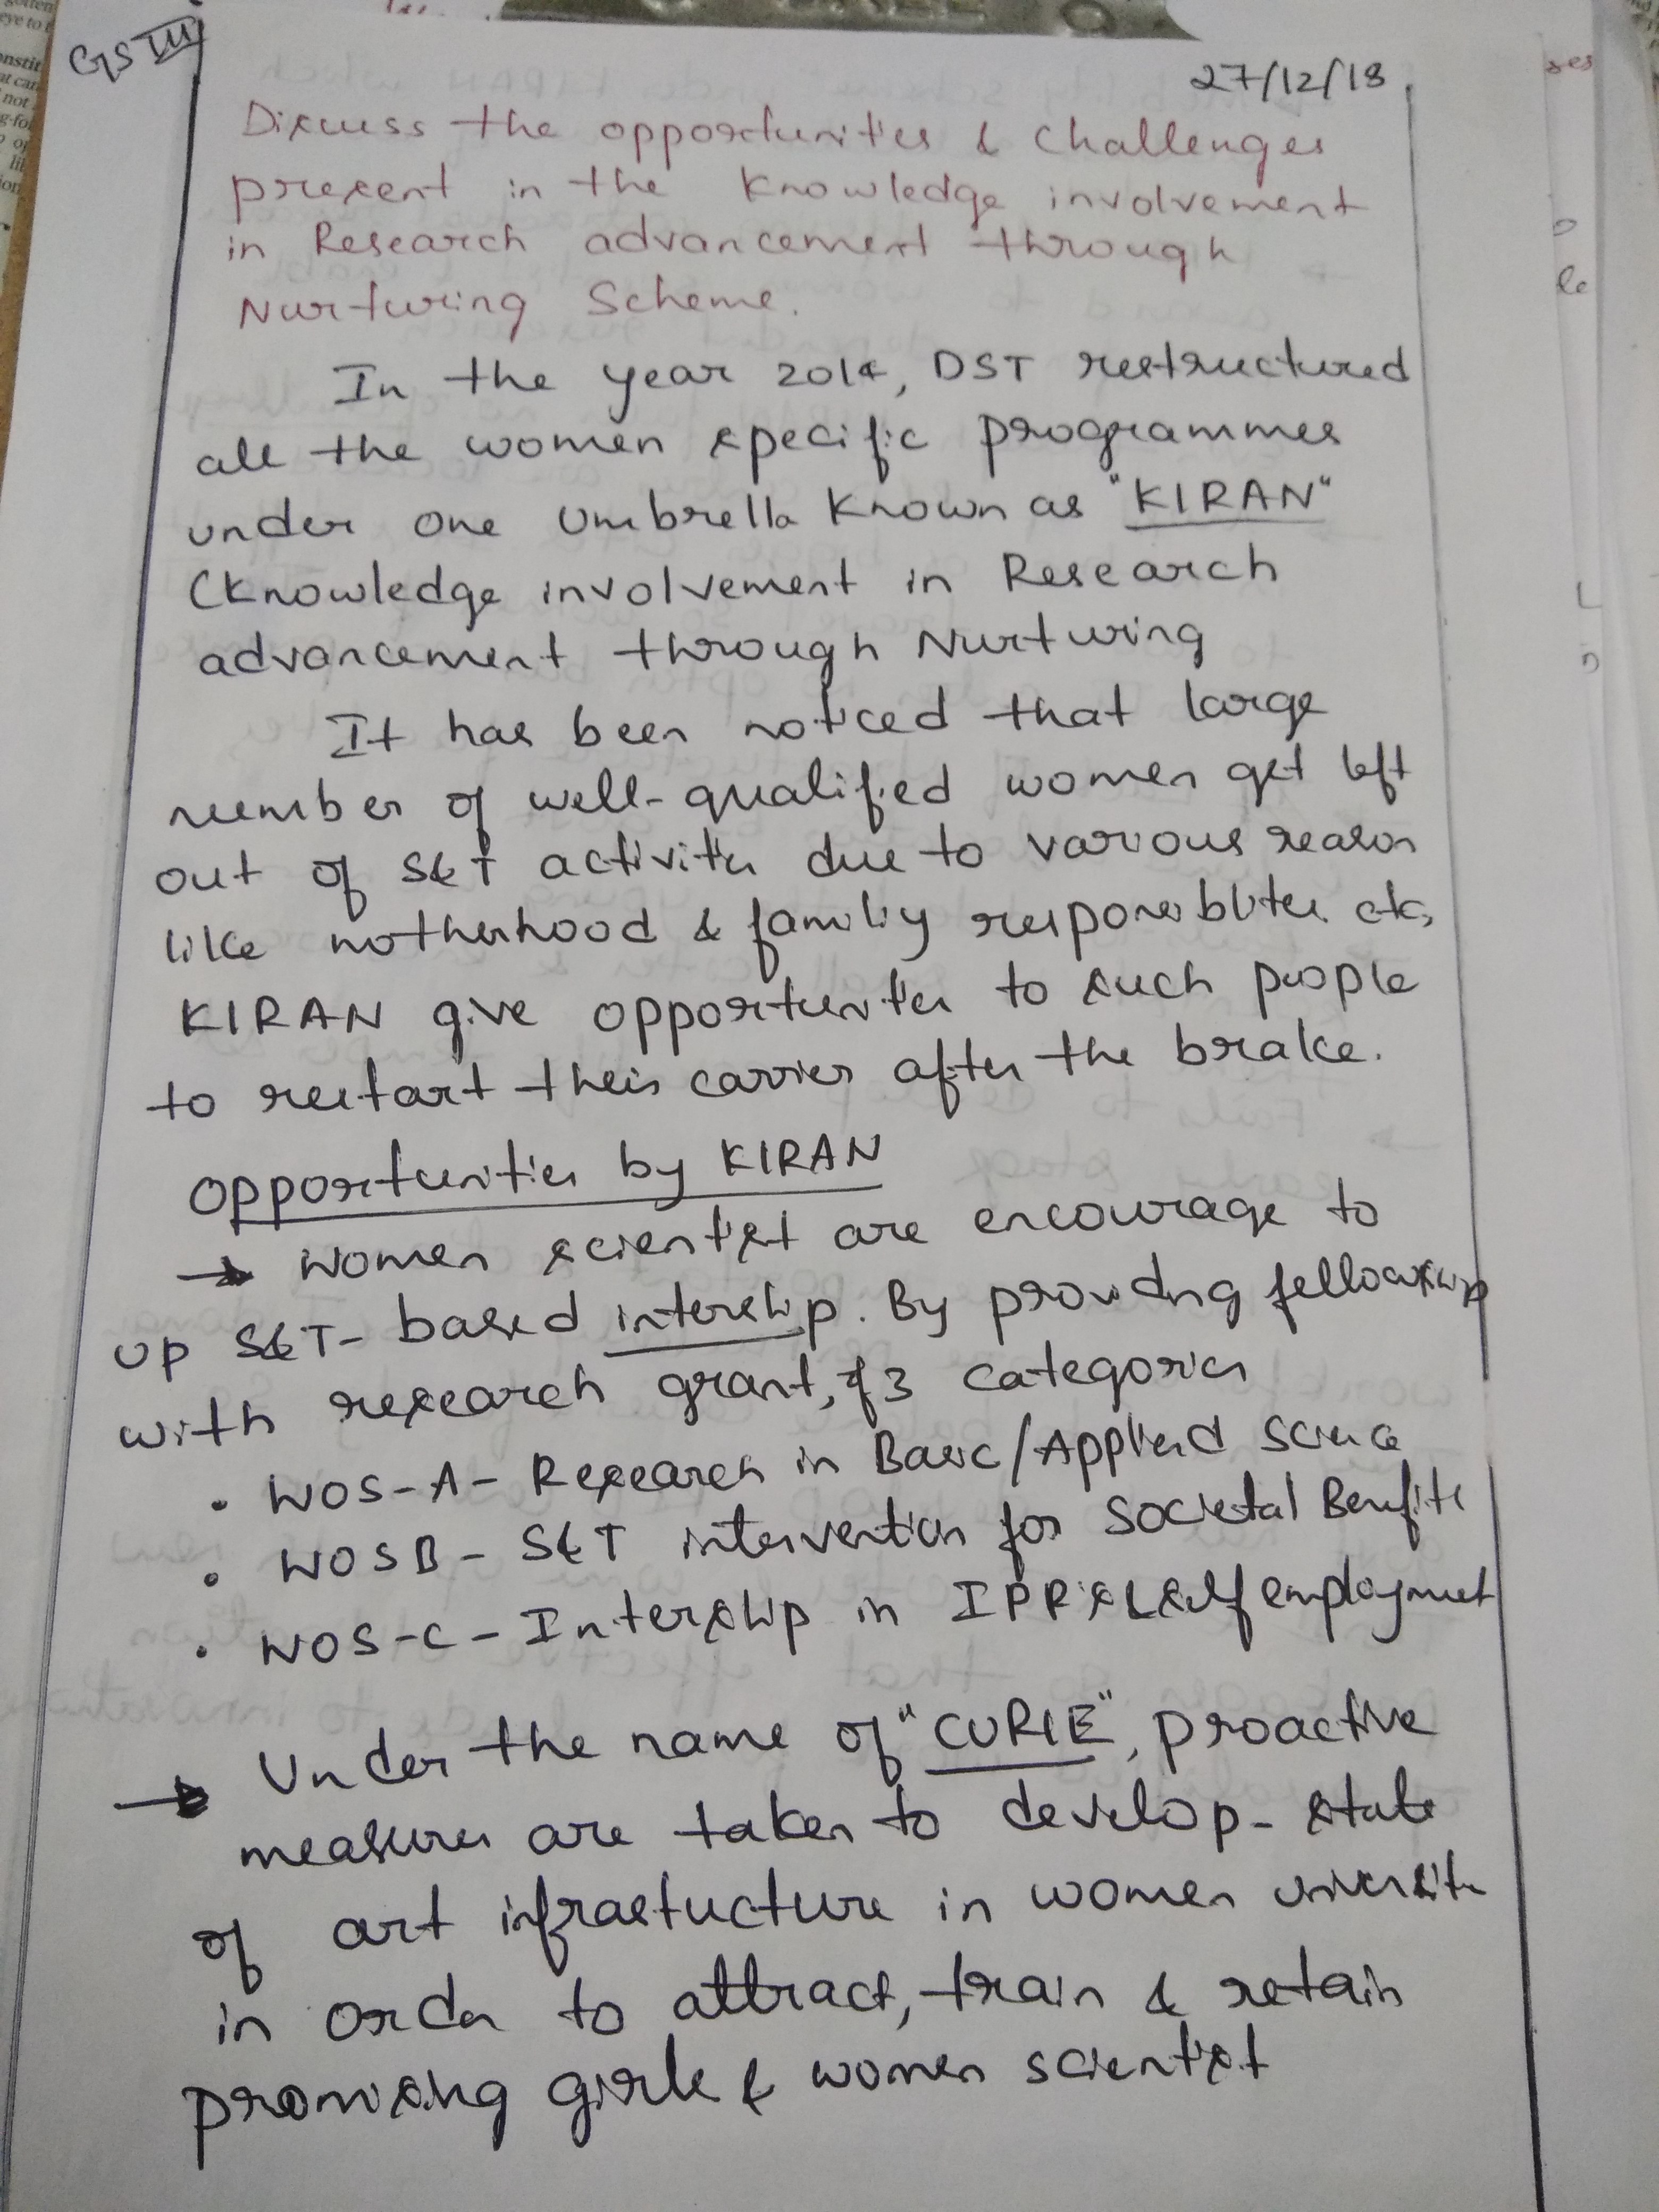 GS III
27/12/18
Discuss the opportunities & Challenges
present in the Knowledge involvement
in Research advancement through
Nurturing Scheme.
In the year 2014, DST restructured
all the women specific programmes
under one Umbrella Known as "KIRAN"
(Knowledge involvement in Research
advancement through Nurturing
It has been noticed that large
number of well-qualified women get left
out of S&T activities due to various reason
like motherhood & family responsibilites etc,
KIRAN give opportunities to such people
to restart their carrier after the brake.
Opportunities by KIRAN
→ Women scientist are encourage to
up S&T- based intership. By providing fellowship
with research grant, of 3 categories
• WOS-A- Research in Basic/Applied Science
• WOSB - S&T intervention for Societal Benefits
• WOS-C- Intership in IPR's & self employment
→ Under the name of "CURIE", proactive
measures are taken to develop- state
of art infrastucture in women universities
in order to attract, train & retain
promising girls & women scientist